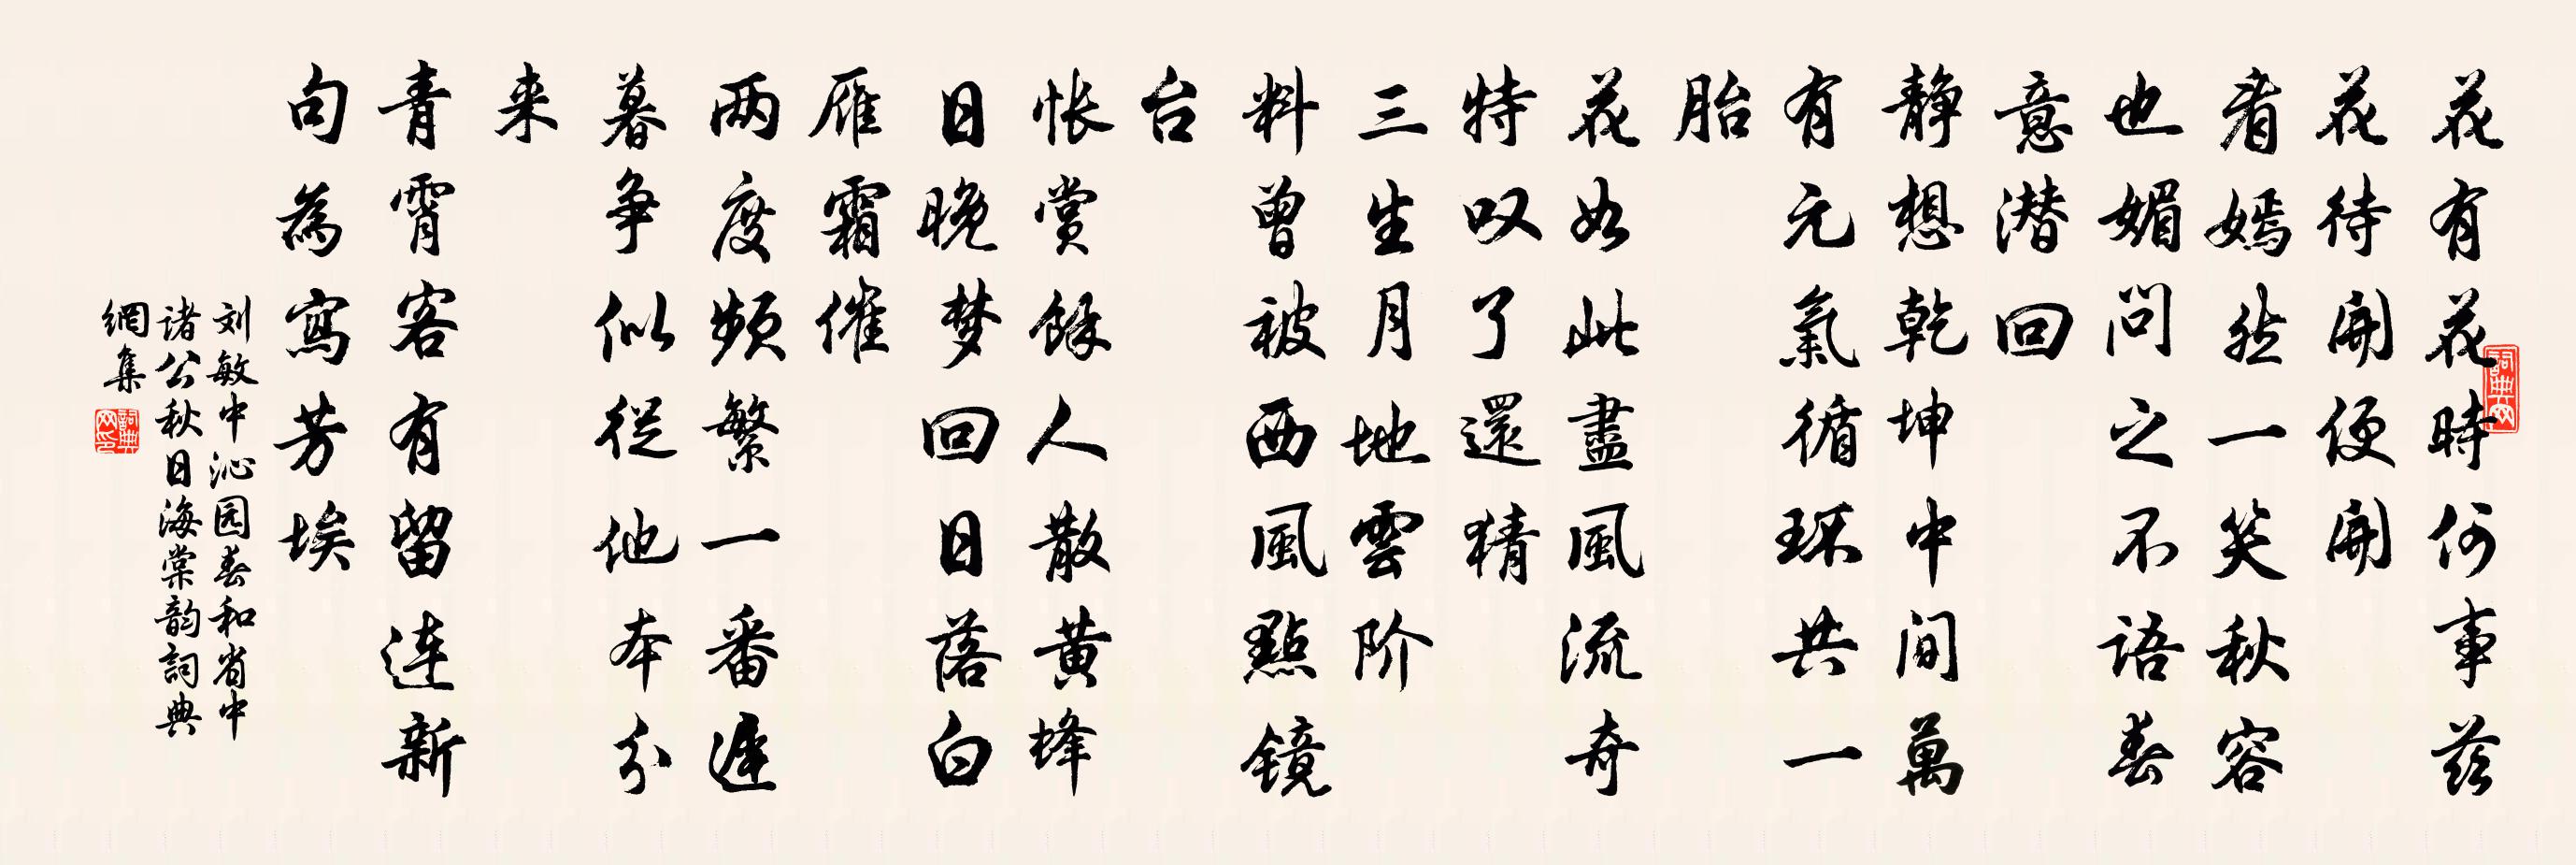 花有花時何事茲
花待開便開
看嫣然一笑秋容
也媚問之不語春
意潜回
静想乾坤中间萬
有元氣循环共一
胎
花如此盡風流奇
特叹了還猜
三生月地雲阶
料曾被西風點镜
台
怅赏馀人散黄蜂
日晚梦回日落白
雁霜催
两度频繁一番遅
暮争似從他本分
来
青霄客有留连新
句為寫芳埃
刘敏中沁园春和省中
诸公秋日海棠韵詞典
網集
詞典网
詞典网印